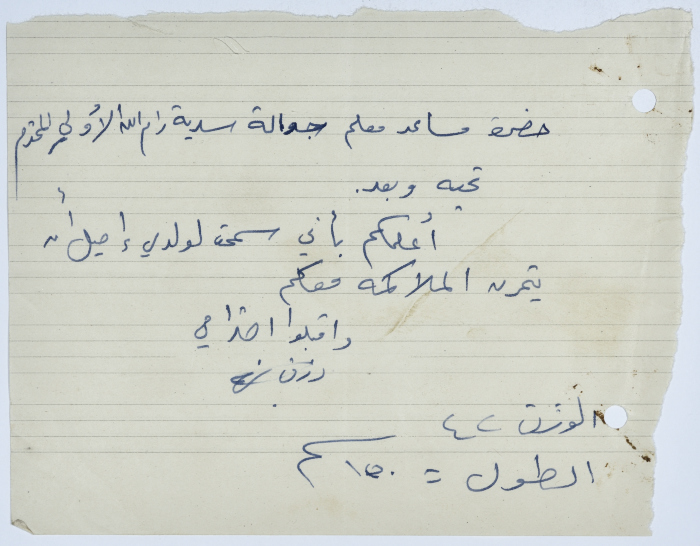 حضرة مساعد معلم جوالة سرية رام الله الأولى المحترم
تحية وبعد.
أعلمكم بأني سمحت لولدي إميل أن
يتمرن الملاكمة معكم
واقبلوا احترامي
الوزن ٤٢
الطول = ١٥٠ سم